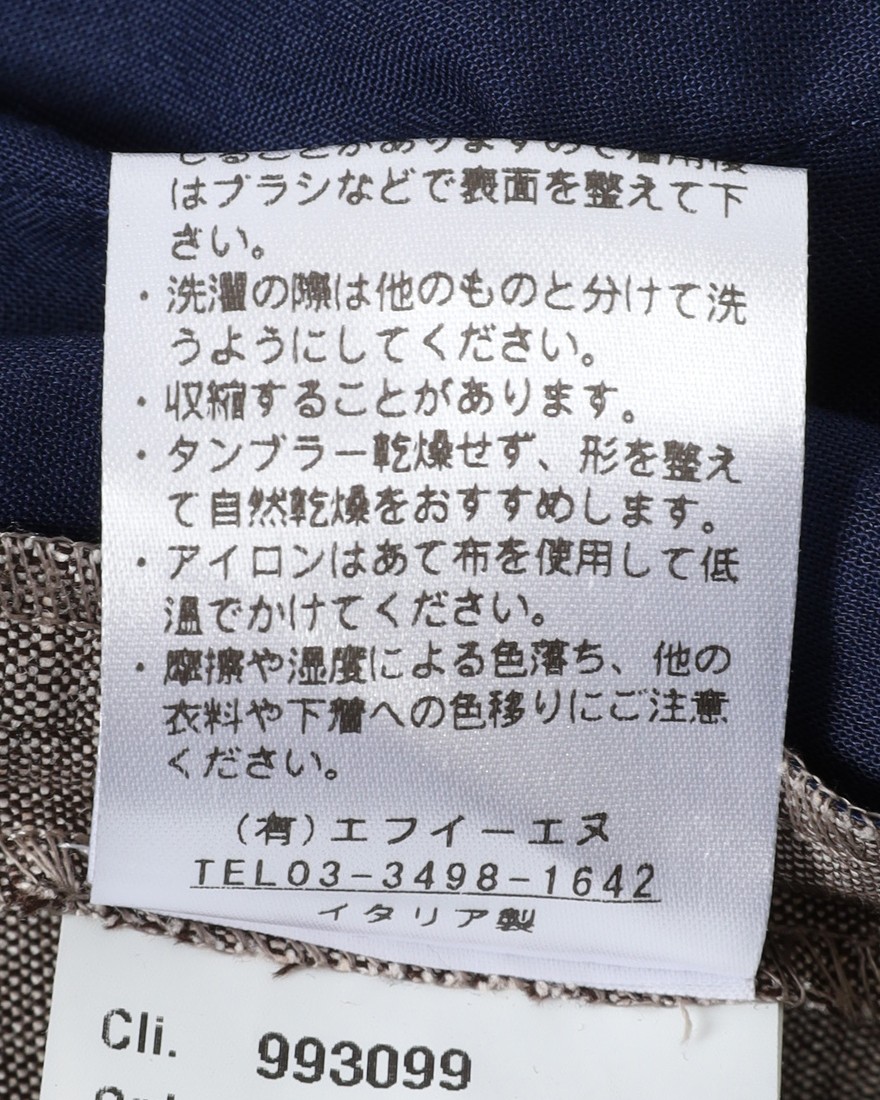 じることがありますので着用後
はブラシなどで表面を整えて下
さい。
・洗濯の際は他のものと分けて洗
うようにしてください。
・収縮することがあります。
・タンブラー乾燥せず、形を整え
て自然乾燥をおすすめします。
・アイロンはあて布を使用して低
温でかけてください。
・摩擦や湿度による色落ち、他の
衣料や下着への色移りにご注意
ください。
(有)エフイーエヌ
TEL03-3498-1642
イタリア製
Cli. 993099